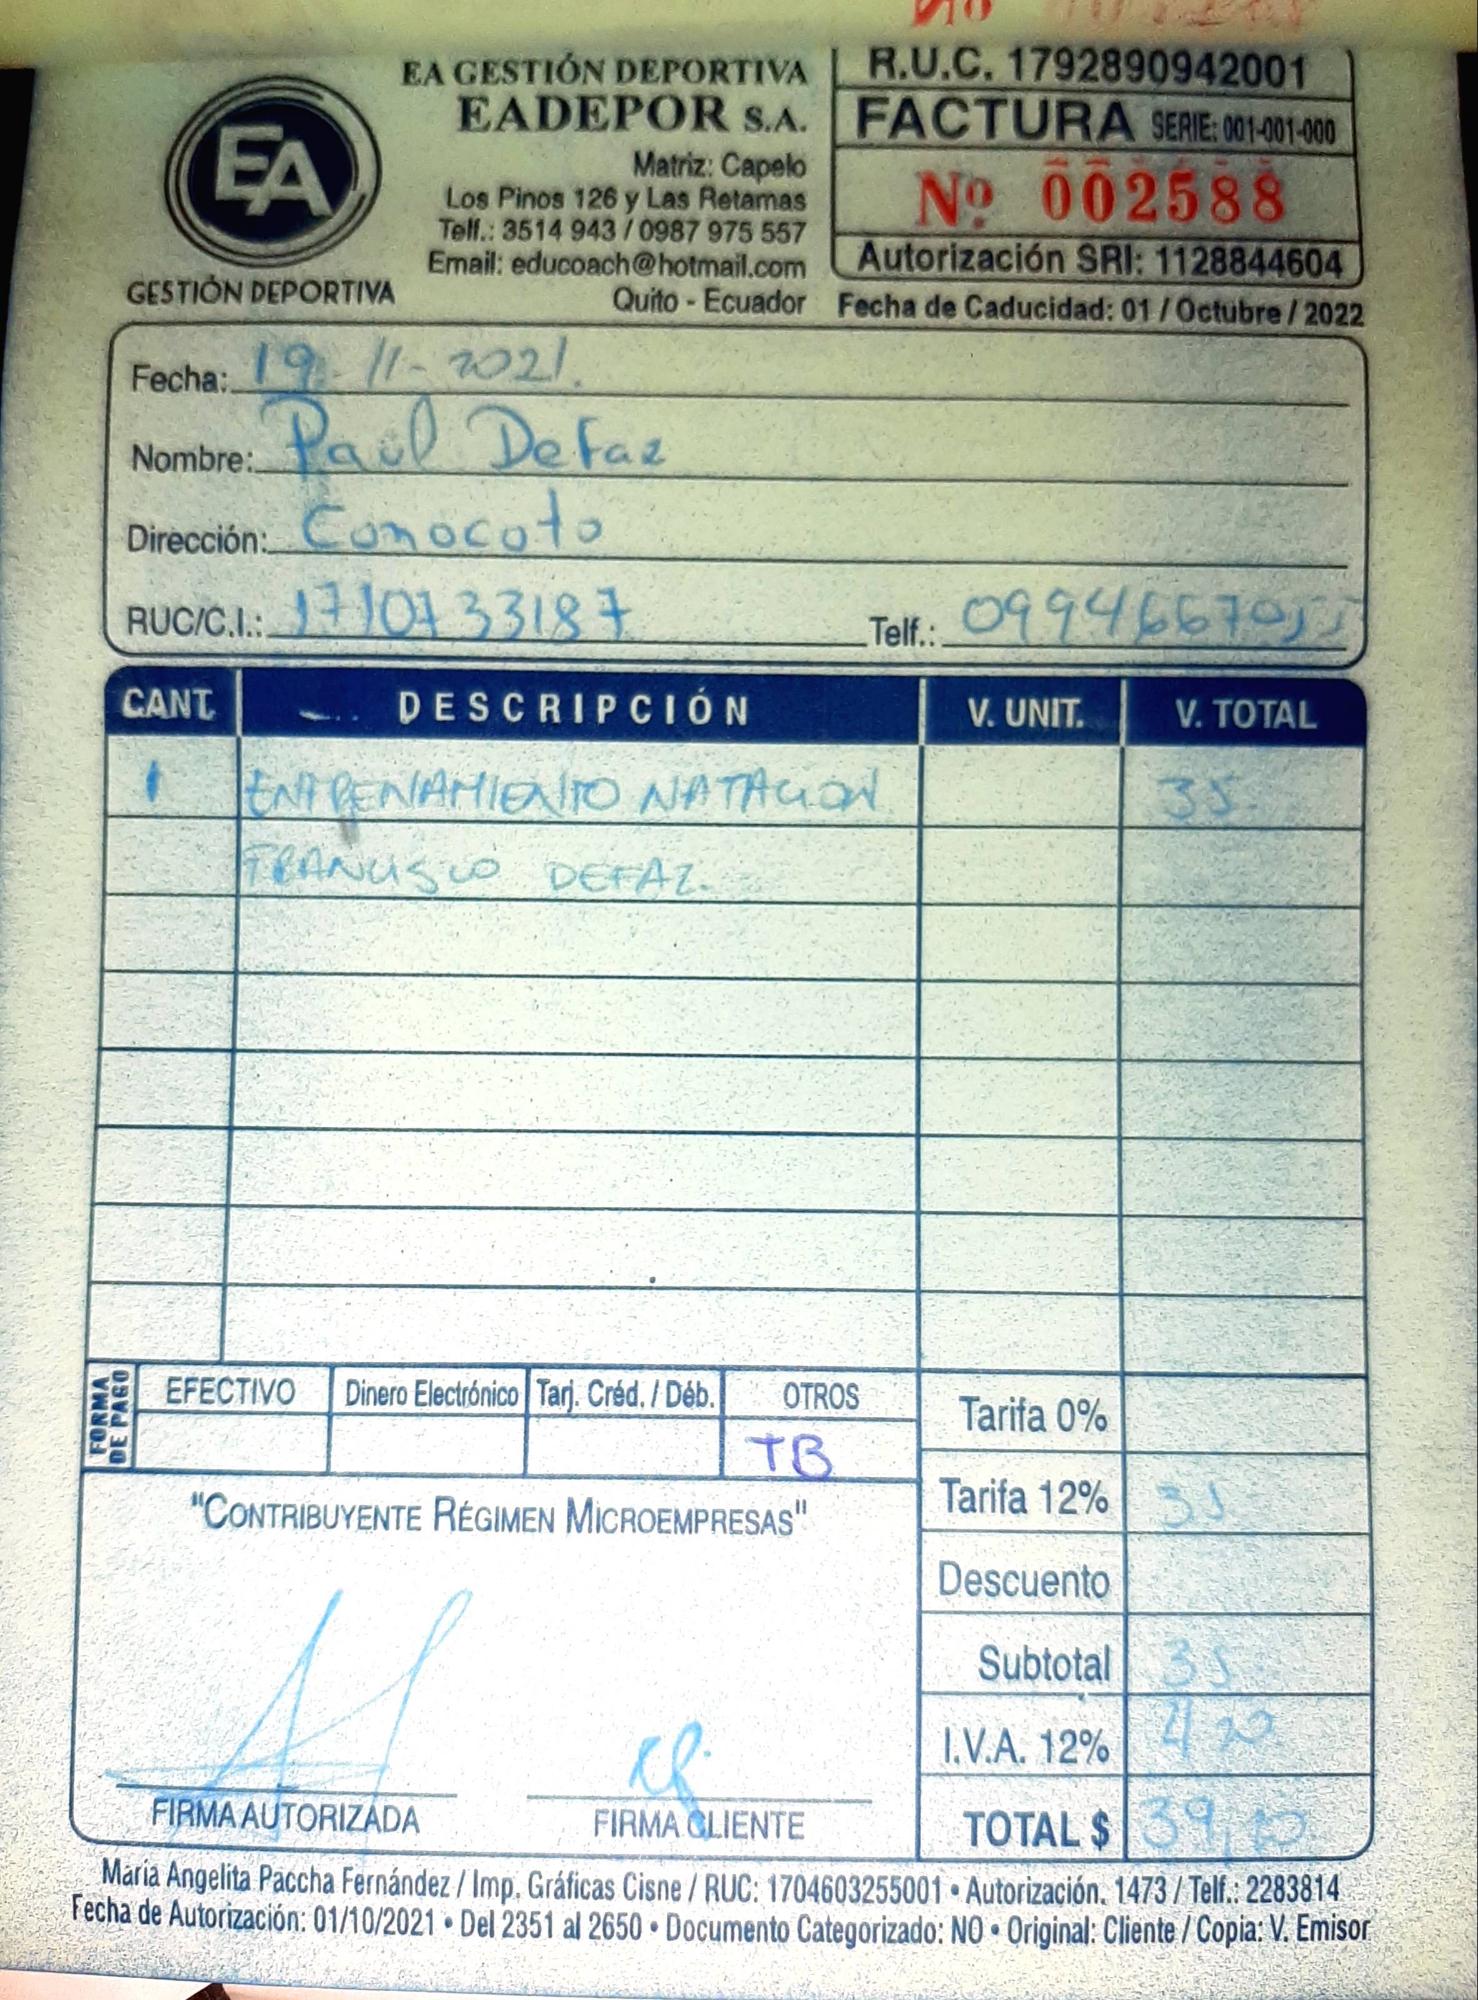 EA GESTIÓN DEPORTIVA
EADEPOR S.A.
Matriz: Capelo
Los Pinos 126 y Las Retamas
Telf.: 3514 943 / 0987 975 557
Email: educoach@hotmail.com
Quito - Ecuador
EA
GESTIÓN DEPORTIVA
R.U.C. 1792890942001
FACTURA SERIE: 001-001-000
Nº 002588
Autorización SRI: 1128844604
Fecha de Caducidad: 01 / Octubre / 2022
Fecha: 19-11-2021.
Nombre: Paul Defaz
Dirección: Conocoto
RUC/C.I.: 1710733187 Telf.: 0994667055
CANT. DESCRIPCIÓN V. UNIT. V. TOTAL
1 ENTRENAMIENTO NATACION 35
FRANCISCO DEFAZ.
FORMA DE PAGO
EFECTIVO Dinero Electrónico Tarj. Créd. / Déb. OTROS
TB
Tarifa 0%
Tarifa 12% 35
Descuento
Subtotal 35
I.V.A. 12% 4 20
TOTAL $ 39,20
"CONTRIBUYENTE RÉGIMEN MICROEMPRESAS"
FIRMA AUTORIZADA FIRMA CLIENTE
María Angelita Paccha Fernández / Imp. Gráficas Cisne / RUC: 1704603255001 • Autorización. 1473 / Telf.: 2283814
Fecha de Autorización: 01/10/2021 • Del 2351 al 2650 • Documento Categorizado: NO • Original: Cliente / Copia: V. Emisor